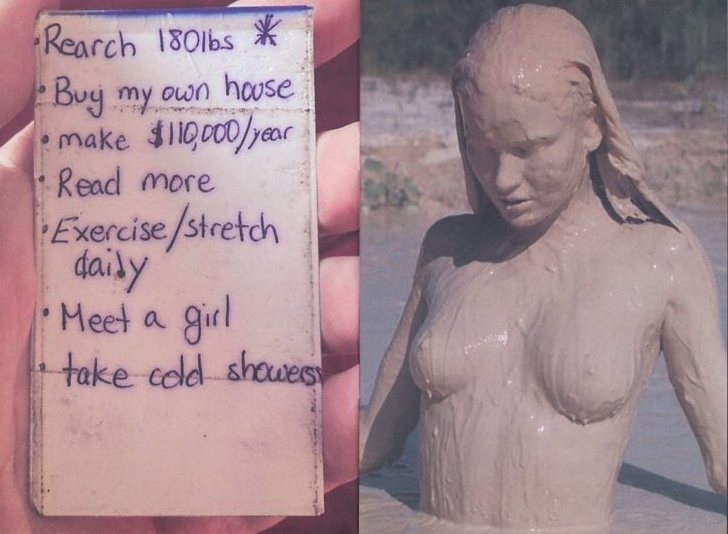 • Rearch 180lbs *
• Buy my own house
• make $110,000/year
• Read more
• Exercise/stretch
daily
• Meet a girl
• take cold showers